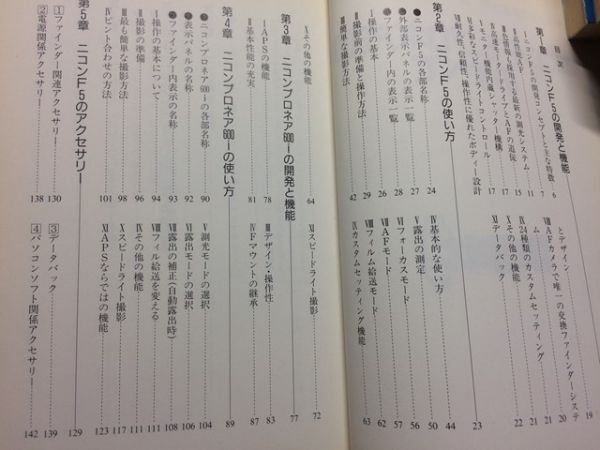 目次
第1章 ニコンF5の開発と機能
Ⅰ ニコンF5の開発コンセプトと主な特徴 6
Ⅱ 高性能AF 7
Ⅲ 色情報も採用する最新の測光システム 11
Ⅳ 高速モータードライブとAFの追従 15
Ⅴ モニター機能内蔵シャッター機構 15
Ⅵ 多彩なスピードライトコントロール 17
Ⅶ 耐久性、信頼性、操作性に優れたボディー設計
とデザイン 19
Ⅷ AFカメラで唯一の交換ファインダーシステ
ム 20
Ⅸ 24種類のカスタムセッティング 21
Ⅹ その他の機能 21
Ⅺ データバック 22
第2章 ニコンF5の使い方 23
●ニコンF5の各部名称 24
●外部表示パネルの表示一覧 27
●ファインダー内の表示一覧 28
Ⅰ 操作の基本 26
Ⅱ 撮影前の準備と操作方法 29
Ⅲ 簡単な撮影方法 42
Ⅳ 基本的な使い方 44
Ⅴ 露出の測定 50
Ⅵ フォーカスモード 56
Ⅶ AFモード 57
Ⅷ フィルム給送モード 62
Ⅸ カスタムセッティング機能 63
Ⅹ その他の機能 64
Ⅺ スピードライト撮影 72
第3章 ニコンプロネア600iの開発と機能 77
Ⅰ APSの機能 78
Ⅱ 基本性能の充実 81
Ⅲ デザイン・操作性 83
Ⅳ Fマウントの継承 87
第4章 ニコンプロネア600iの使い方 89
●ニコンプロネア600iの各部名称 90
●表示パネルの名称 92
●ファインダー内表示の名称 93
Ⅰ 操作の基本について 94
Ⅱ 撮影の準備 96
Ⅲ 最も簡単な撮影方法 98
Ⅳ ピント合わせの方法 101
Ⅴ 測光モードの選択 104
Ⅵ 露出モードの選択 106
Ⅶ 露出の補正(自動露出時) 108
Ⅷ フィルム給送を変える 111
Ⅸ その他の機能 111
Ⅹ スピードライト撮影 117
Ⅺ APSならではの機能 123
第5章 ニコンF5のアクセサリー 129
1 ファインダー関連アクセサリー 130
2 電源関係アクセサリー 138
3 データバック 139
4 パソコンソフト関係アクセサリー 142